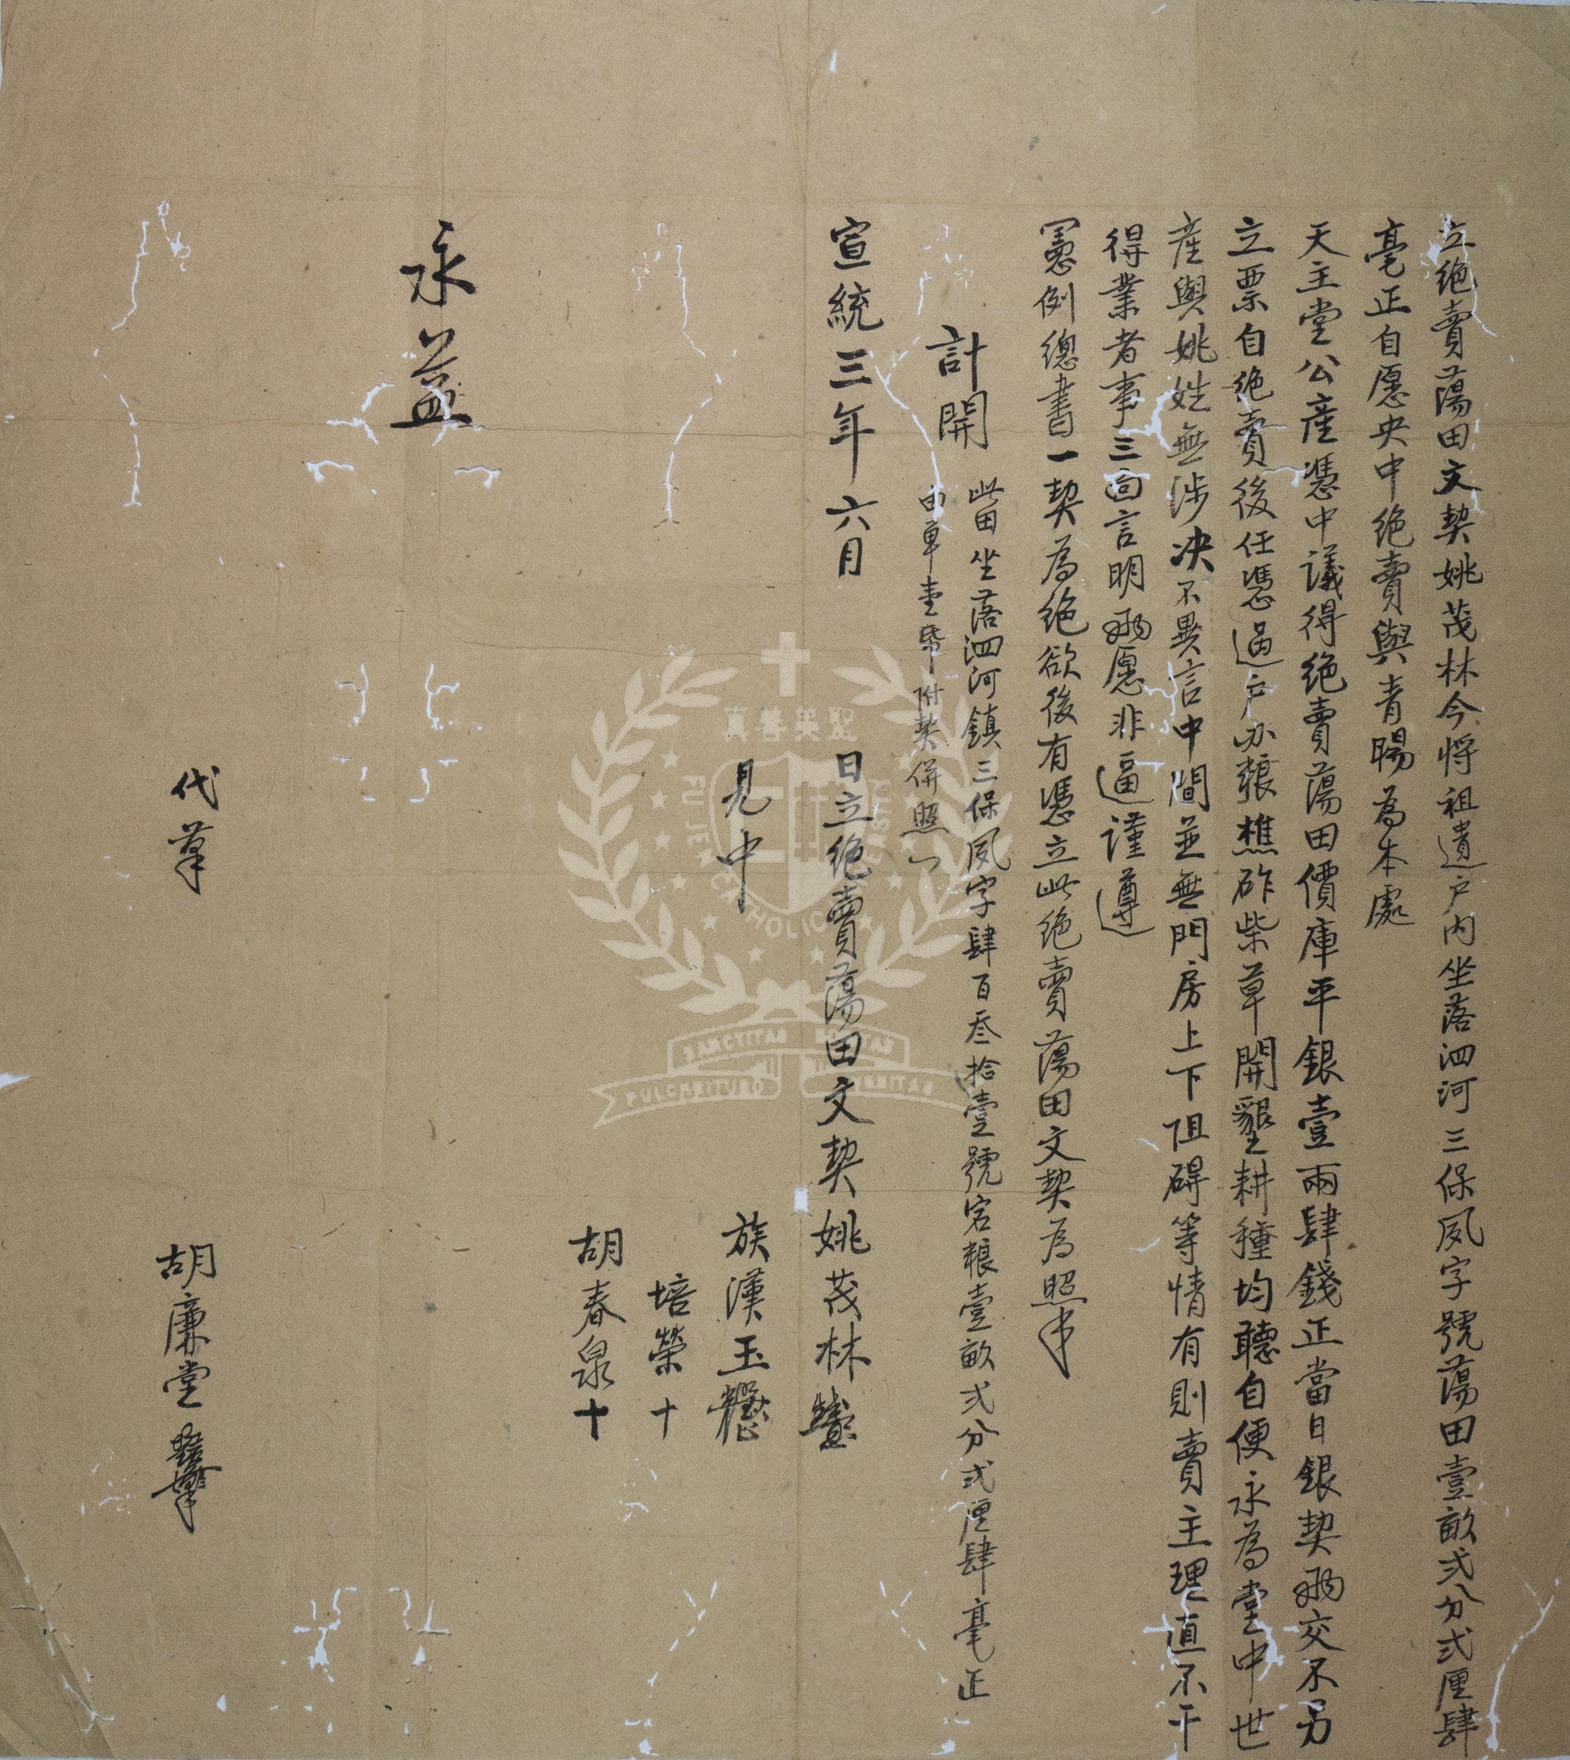 立絶賣蕩田文契姚茂林今将祖遺户内坐落泗河三保夙字號蕩田壹畝弍分弍厘肆
毫正自愿央中绝賣與青暘為本處
天主堂公產憑中議得绝賣蕩田價庫平銀壹兩肆錢正當日銀契兩交不另
立票自绝賣後任憑過户办粮樵砟柴草開墾耕種均聽自便永為堂中世
産與姚姓無涉决不異言中間並無門房上下阻碍等情有則賣主理直不干
得業者事三面言明兩愿非逼謹遵
憲例總書一契為绝欲後有憑立此绝賣蕩田文契為照
計開
此田坐落泗河鎮三保夙字肆百叁拾壹號宕粮壹畝弍分弍厘肆毫正
由单壹帋附契併照
宣統三年六月 日立绝賣蕩田文契姚茂林
見中 族漢玉
培榮十
胡春泉十
永益
代筆 胡廉堂
真善美聖
FU JEN CATHOLIC
SANCTITAS BONITAS
PULCHRITUDO VERITAS